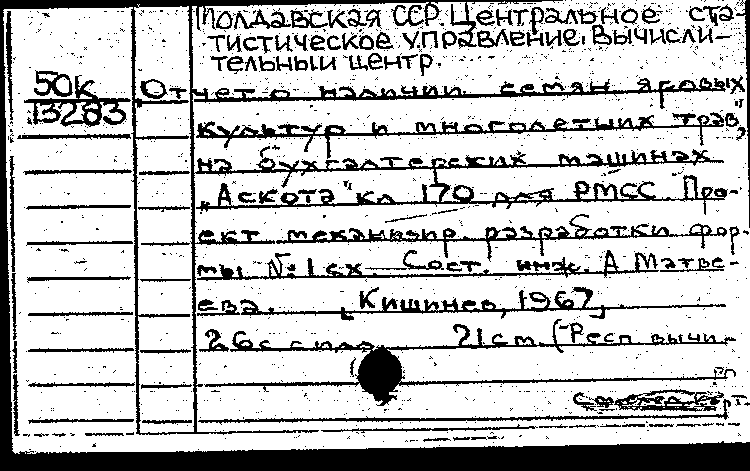 Молдавская ССР. Центральное ста-
тистическое управление. Вычисли-
тельный центр.
50К Отчет о наличии семян яровых
13283 культур и многолетних трав,
на бухгалтерских машинах
„Аскота" кл 170 для РМСС. Про-
ект механизир. разработки фор-
мы № 1 сх Сост. инж. А Матве-
ева. [Кишинев, 1967]
26с с илл. 21 cm. (Респ вычи-